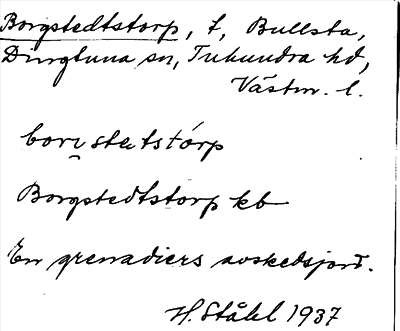 Borgstedtstorp, t, Bullsta,
Dingtuna sn, Tuhundra hd,
Västm. l.
boru̯statstórp
Borgstedtstorp kb
En grenadiers avskedsjord.
H. Ståhl 1937